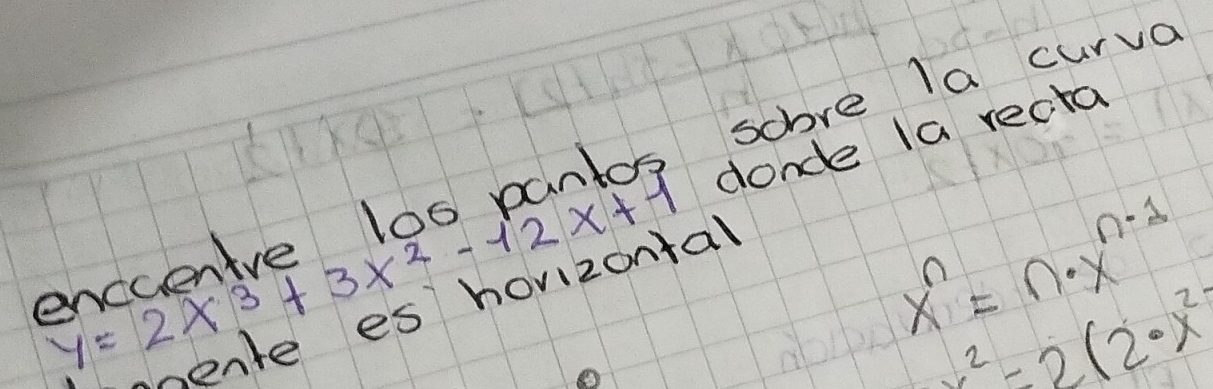 enccentre los pantos sobre la curva
y = 2x³ + 3x² - 12x + 1 donde la recta
es horizontal
xⁿ = n·xⁿ⁻¹
² = 2(2·x²⁻